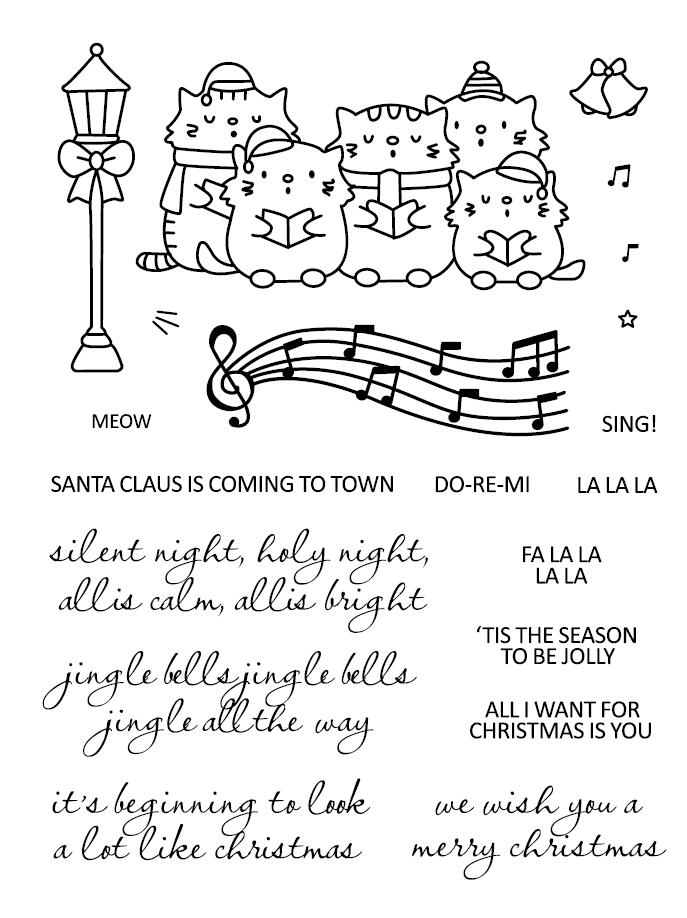 MEOW
SING!
SANTA CLAUS IS COMING TO TOWN
DO-RE-MI
LA LA LA
silent night, holy night,
all is calm, all is bright
FA LA LA
LA LA
'TIS THE SEASON
TO BE JOLLY
jingle bells jingle bells
jingle all the way
ALL I WANT FOR
CHRISTMAS IS YOU
it's beginning to look
a lot like christmas
we wish you a
merry christmas